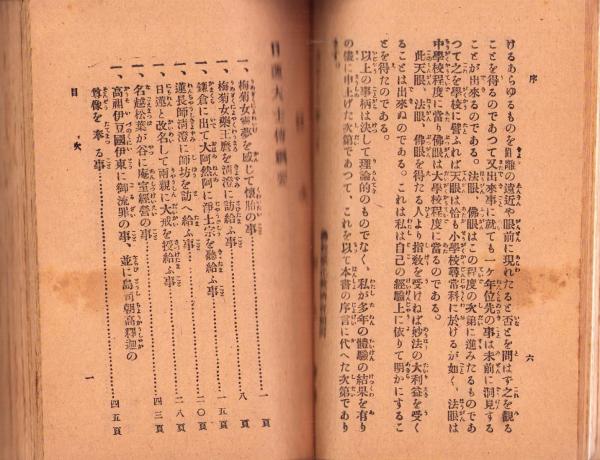 序
六
けるあらゆるものを距離の遠近や眼前に現れたると否とを問はず之を觀る
ことを得るのであつて又出來事に就ても一ケ年位先の事は未前に洞見する
ことが出來るのである。法眼、佛眼はこの程度の次第に進みたるものであ
つて之を學校に譬ふれば天眼は恰も小學校尋常科に於けるが如く、法眼は
中學校程度に當り佛眼は大學校程度に當るのである。
此天眼、法眼、佛眼を得たる人より指敎を受けねば妙法の大利益を受く
ることは出來ぬのである。これは私は自己の經驗上に依りて明かにするこ
とを得たのである。
以上の事柄は決して理論的のものでなく、私が多年の體驗の結果を有り
の儘に申上げた次第であつて、これを以て本書の序言に代へた次第であり
目次
一、梅菊女靈夢を感じて懷胎の事………一頁
一、梅菊女藥王麿を清澄に訪給ふ事………八頁
一、鎌倉に出て大阿然阿に淨土宗を聽給ふ事………一五頁
一、蓮長師清澄に師坊を訪へ給ふ事………二〇頁
一、日蓮と改名して兩親に大戒を授給ふ事………二八頁
一、名越松葉が谷に庵室經營の事………四三頁
一、高祖伊豆國伊東に御流罪の事、並に島司朝高釋迦の
尊像を奉る事………四五頁
目次
一